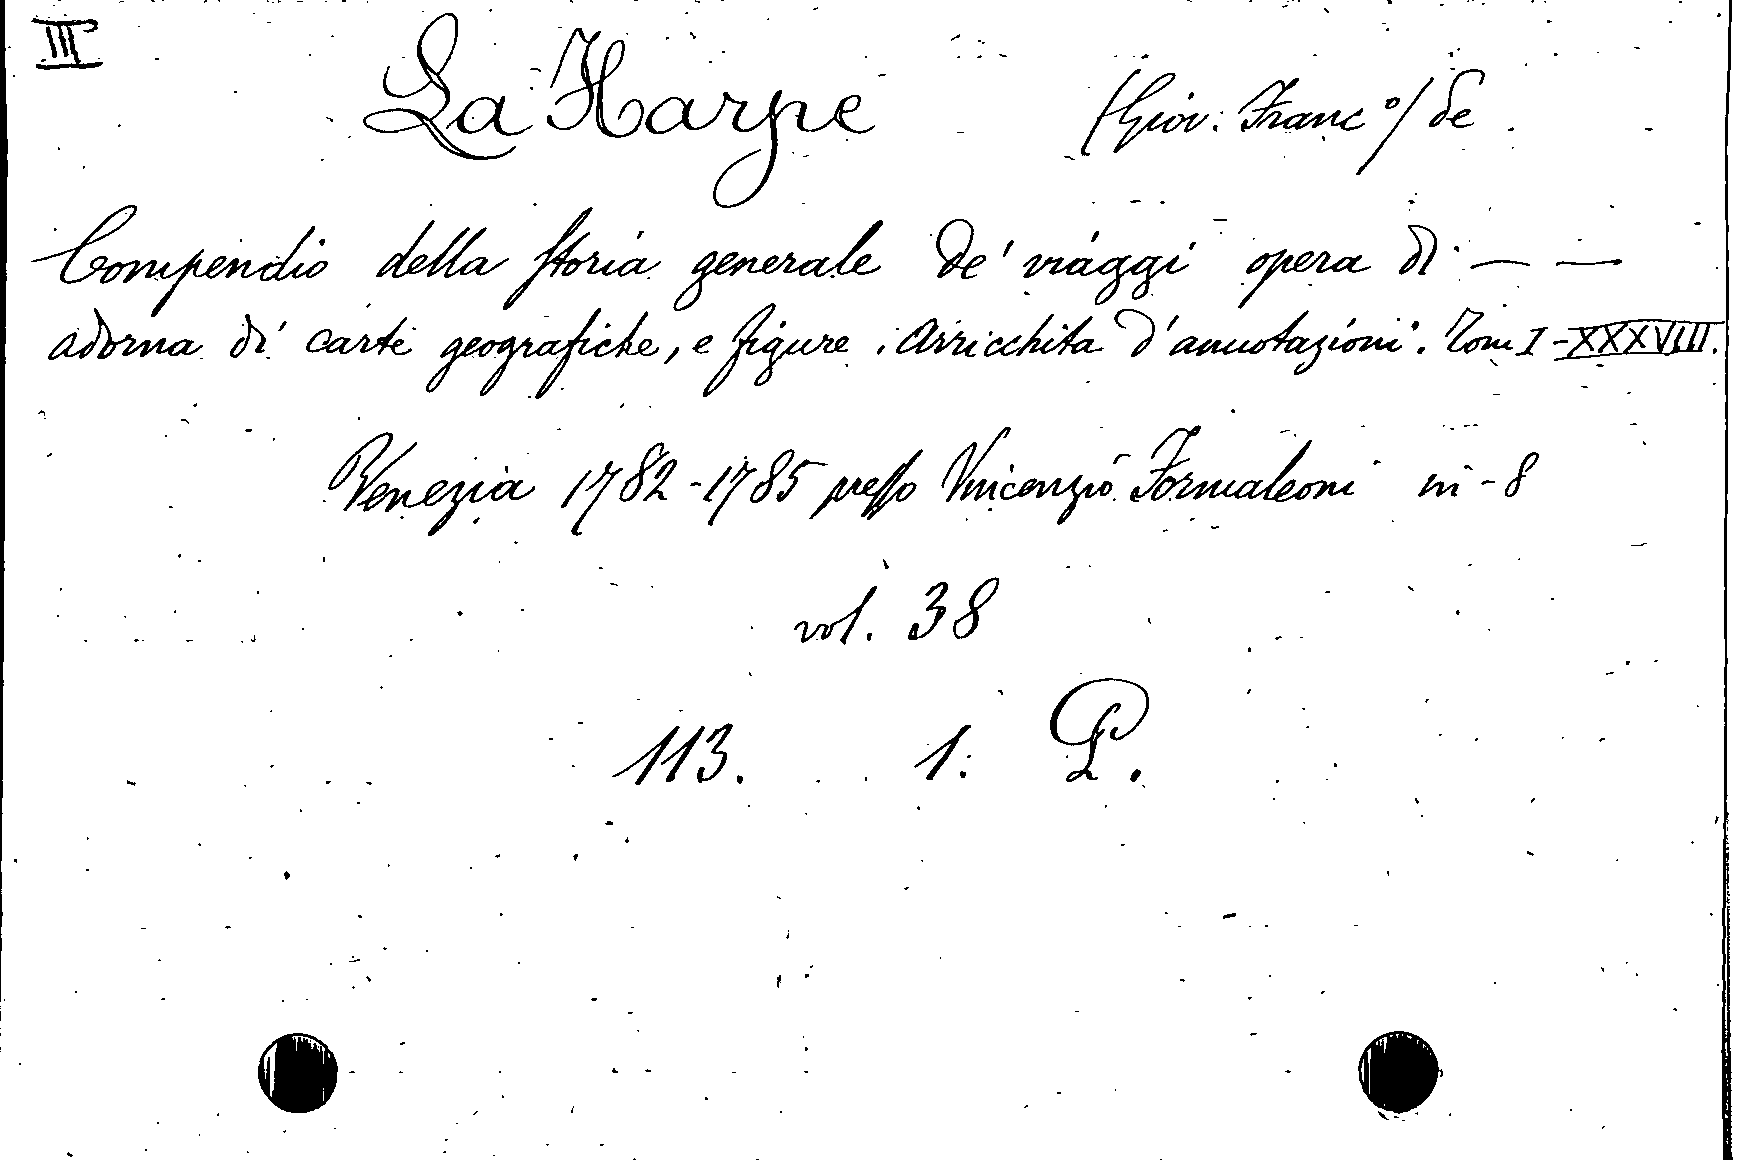 III
La Harpe (Giov: Franc°) de
Compendio della storia generale de' viaggi opera di — —
adorna di carte geografiche, e figure. Arricchita d'annotazioni. Tom I-XXXVIII.
Venezia 1782-1785 presso Vincenzio Formaleoni in-8
vol. 38
113. 1. P.